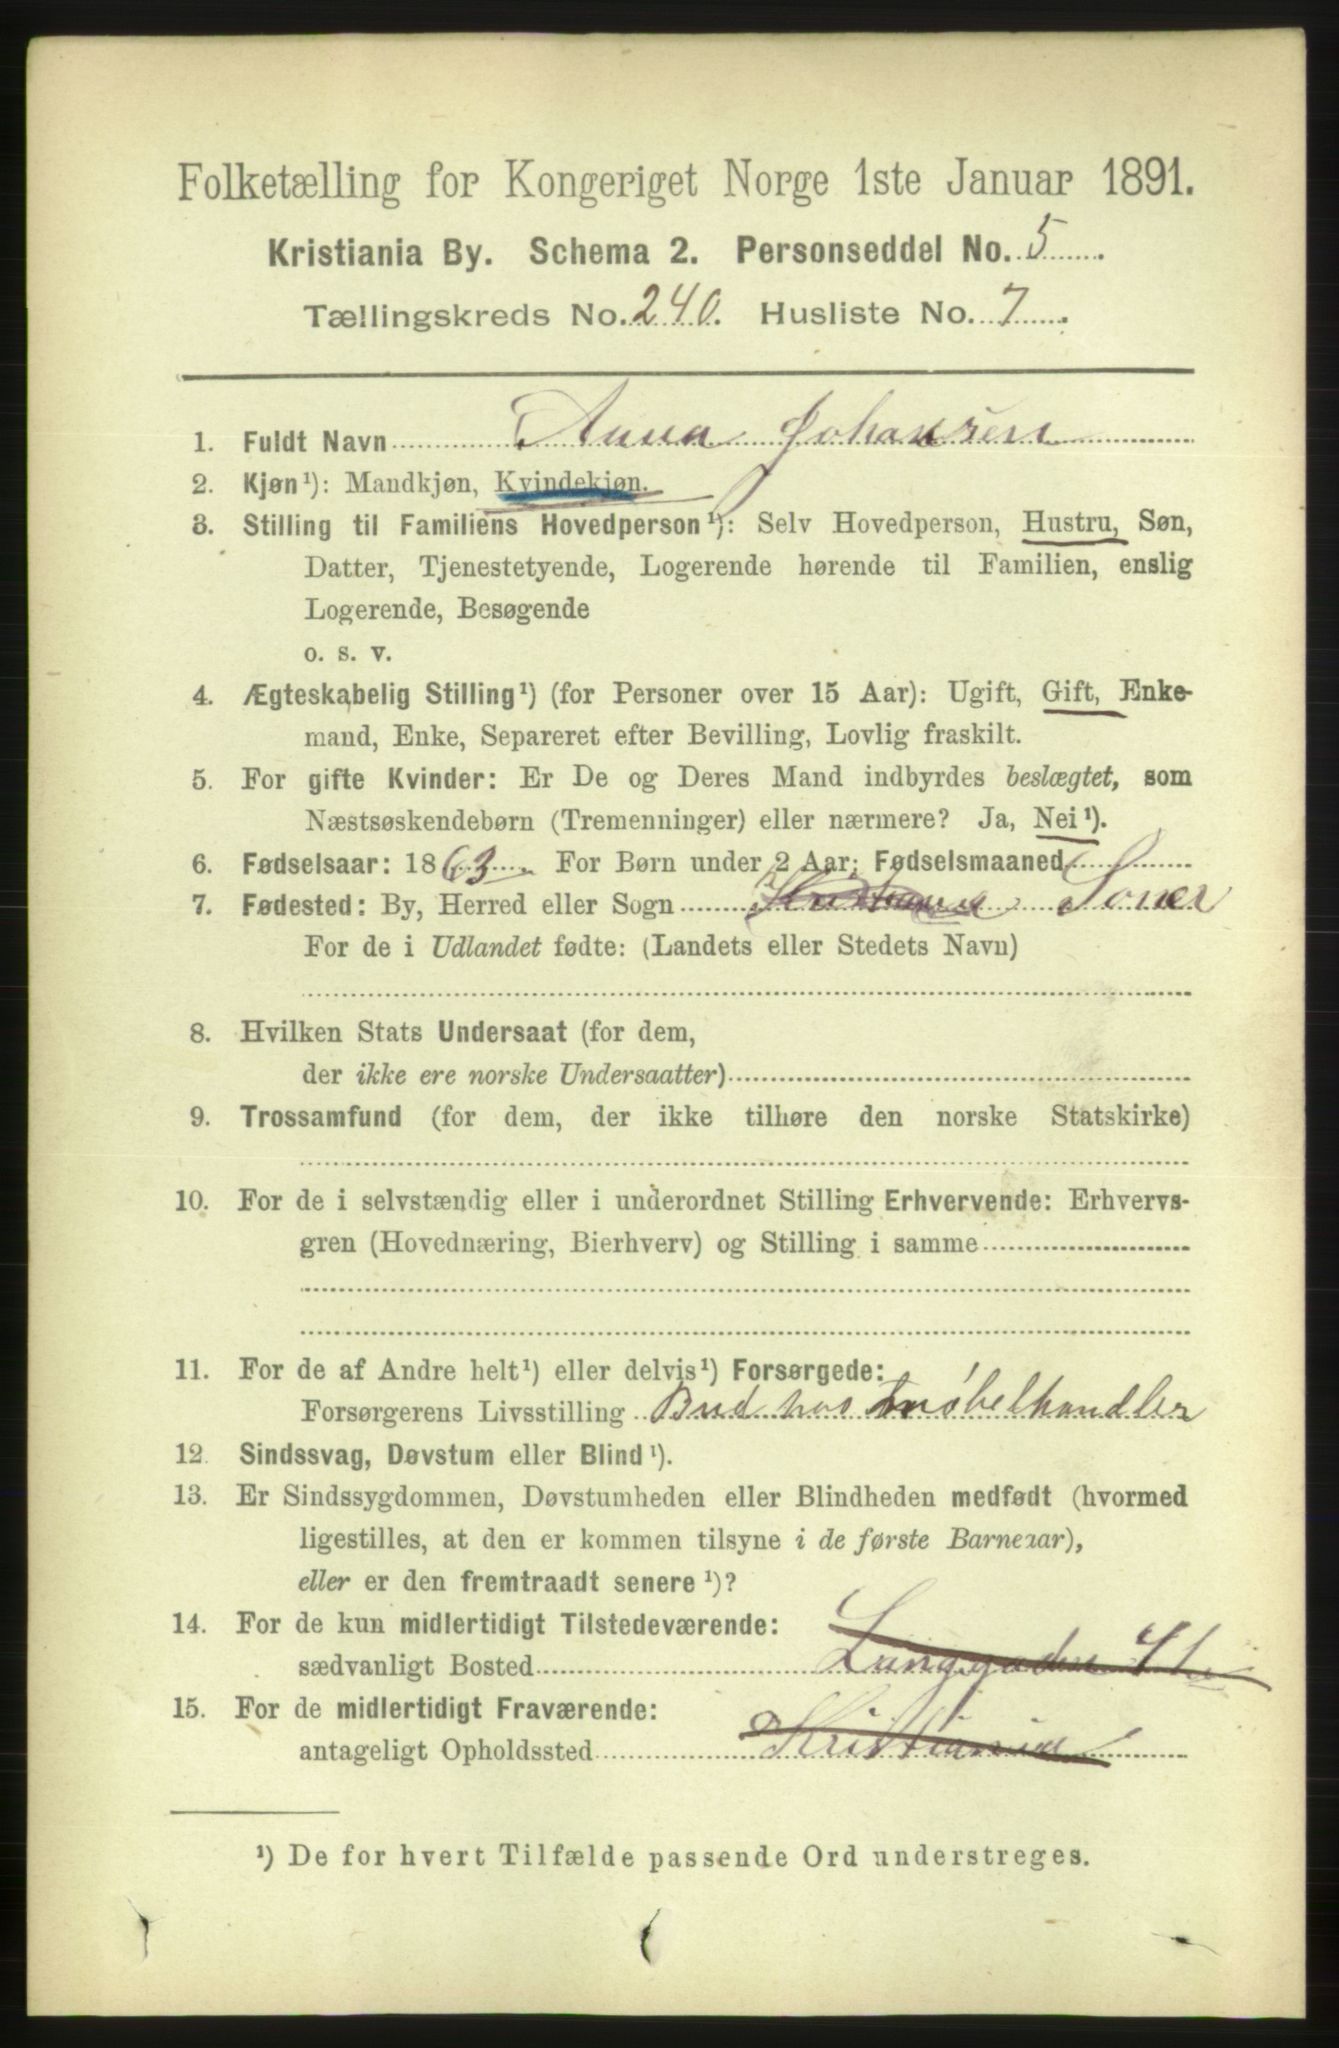 Folketælling for Kongeriget Norge 1ste Januar 1891.
Kristiania By. Schema 2. Personseddel No. 5
Tællingskreds No. 240. Husliste No. 7
1. Fuldt Navn Anna Johansen
2. Kjøn¹): Mandkjøn, Kvindekjøn.
3. Stilling til Familiens Hovedperson¹): Selv Hovedperson, Hustru, Søn,
Datter, Tjenestetyende, Logerende hørende til Familien, enslig
Logerende, Besøgende
o. s. v.
4. Ægteskabelig Stilling¹) (for Personer over 15 Aar): Ugift, Gift, Enke-
mand, Enke, Separeret efter Bevilling, Lovlig fraskilt.
5. For gifte Kvinder: Er De og Deres Mand indbyrdes beslægtet, som
Næstsøskendebørn (Tremenninger) eller nærmere? Ja, Nei¹).
6. Fødselsaar: 1863. For Børn under 2 Aar: Fødselsmaaned
7. Fødested: By, Herred eller Sogn Kristiania Soner
For de i Udlandet fødte: (Landets eller Stedets Navn)
8. Hvilken Stats Undersaat (for dem,
der ikke ere norske Undersaatter)
9. Trossamfund (for dem, der ikke tilhøre den norske Statskirke)
10. For de i selvstændig eller i underordnet Stilling Erhvervende: Erhvervs-
gren (Hovednæring, Bierhverv) og Stilling i samme
11. For de af Andre helt¹) eller delvis¹) Forsørgede:
Forsørgerens Livsstilling Bud hos møbelhandler
12. Sindssvag, Døvstum eller Blind¹).
13. Er Sindssygdommen, Døvstumheden eller Blindheden medfødt (hvormed
ligestilles, at den er kommen tilsyne i de første Barneaar),
eller er den fremtraadt senere¹)?
14. For de kun midlertidigt Tilstedeværende:
sædvanligt Bosted Langgaden
15. For de midlertidigt Fraværende:
antageligt Opholdssted Kristiania
¹) De for hvert Tilfælde passende Ord understreges.